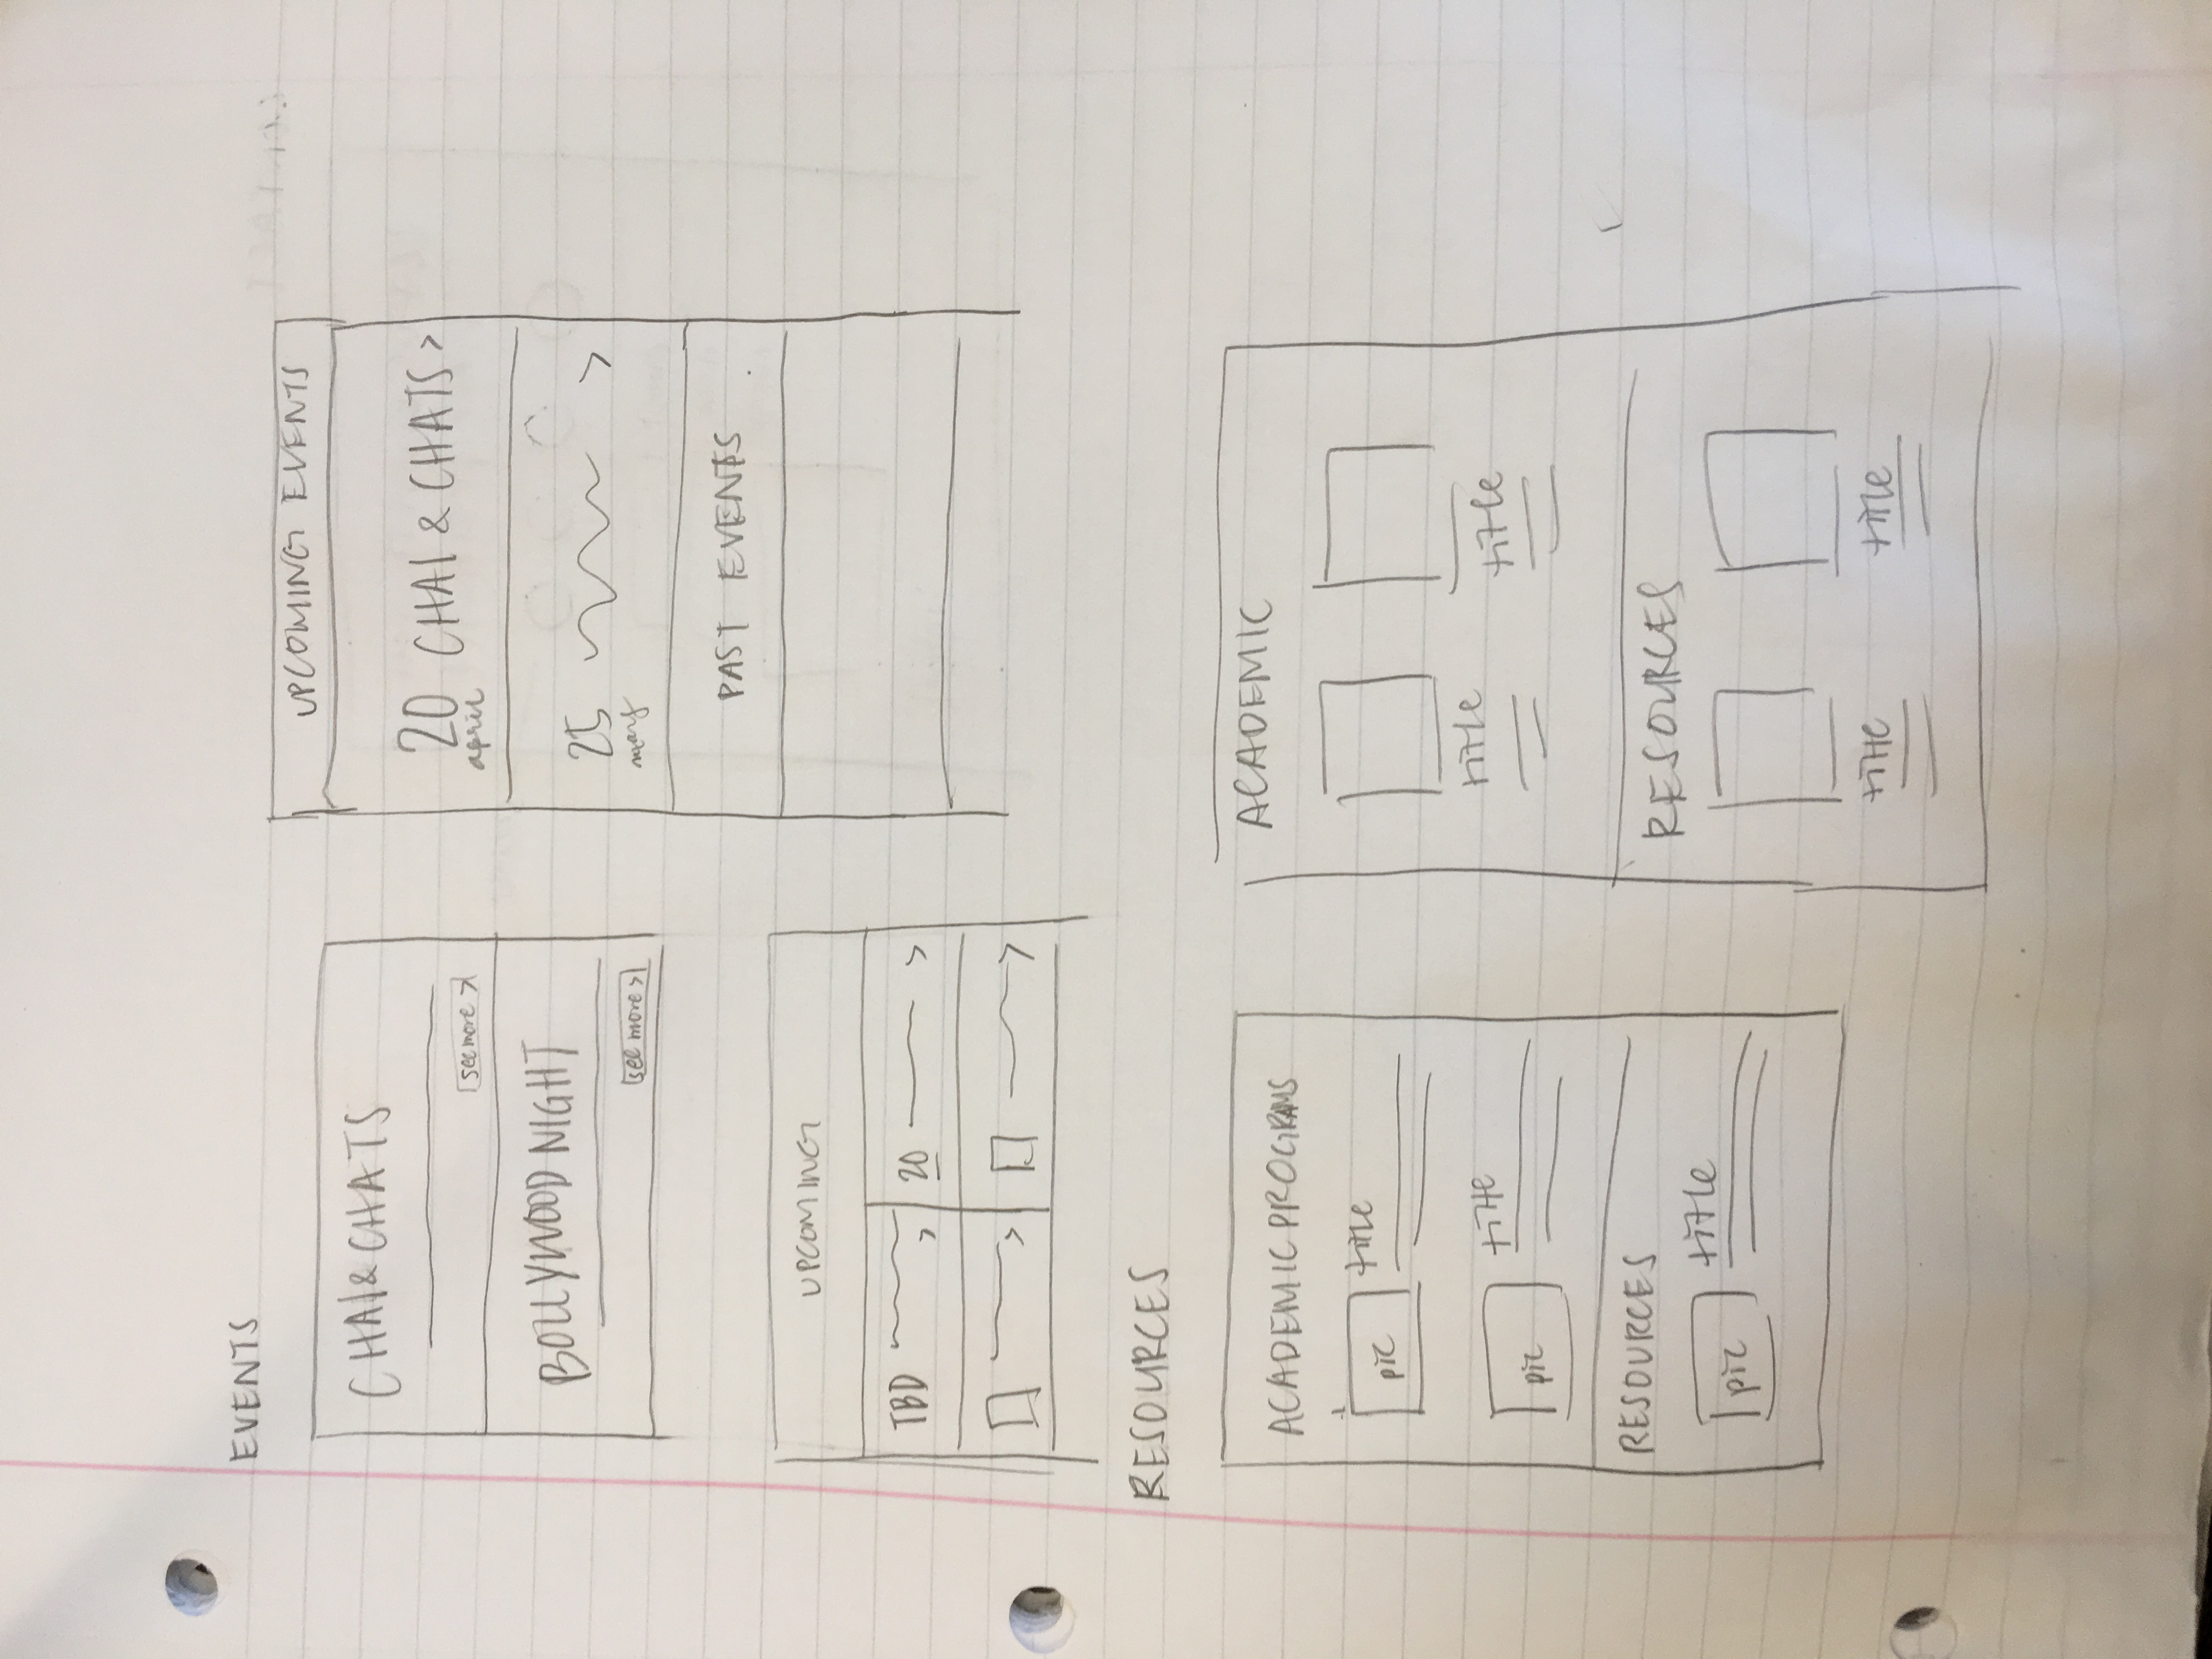 EVENTS
CHAI & CHATS
see more >
BOLLYWOOD NIGHT
see more >
UPCOMING EVENTS
20 CHAI & CHATS >
april
25 >
may
PAST EVENTS
UPCOMING
TBD > 20 >
> >
RESOURCES
ACADEMIC PROGRAMS
pic title
pic title
RESOURCES
pic title
ACADEMIC
title title
RESOURCES
title title